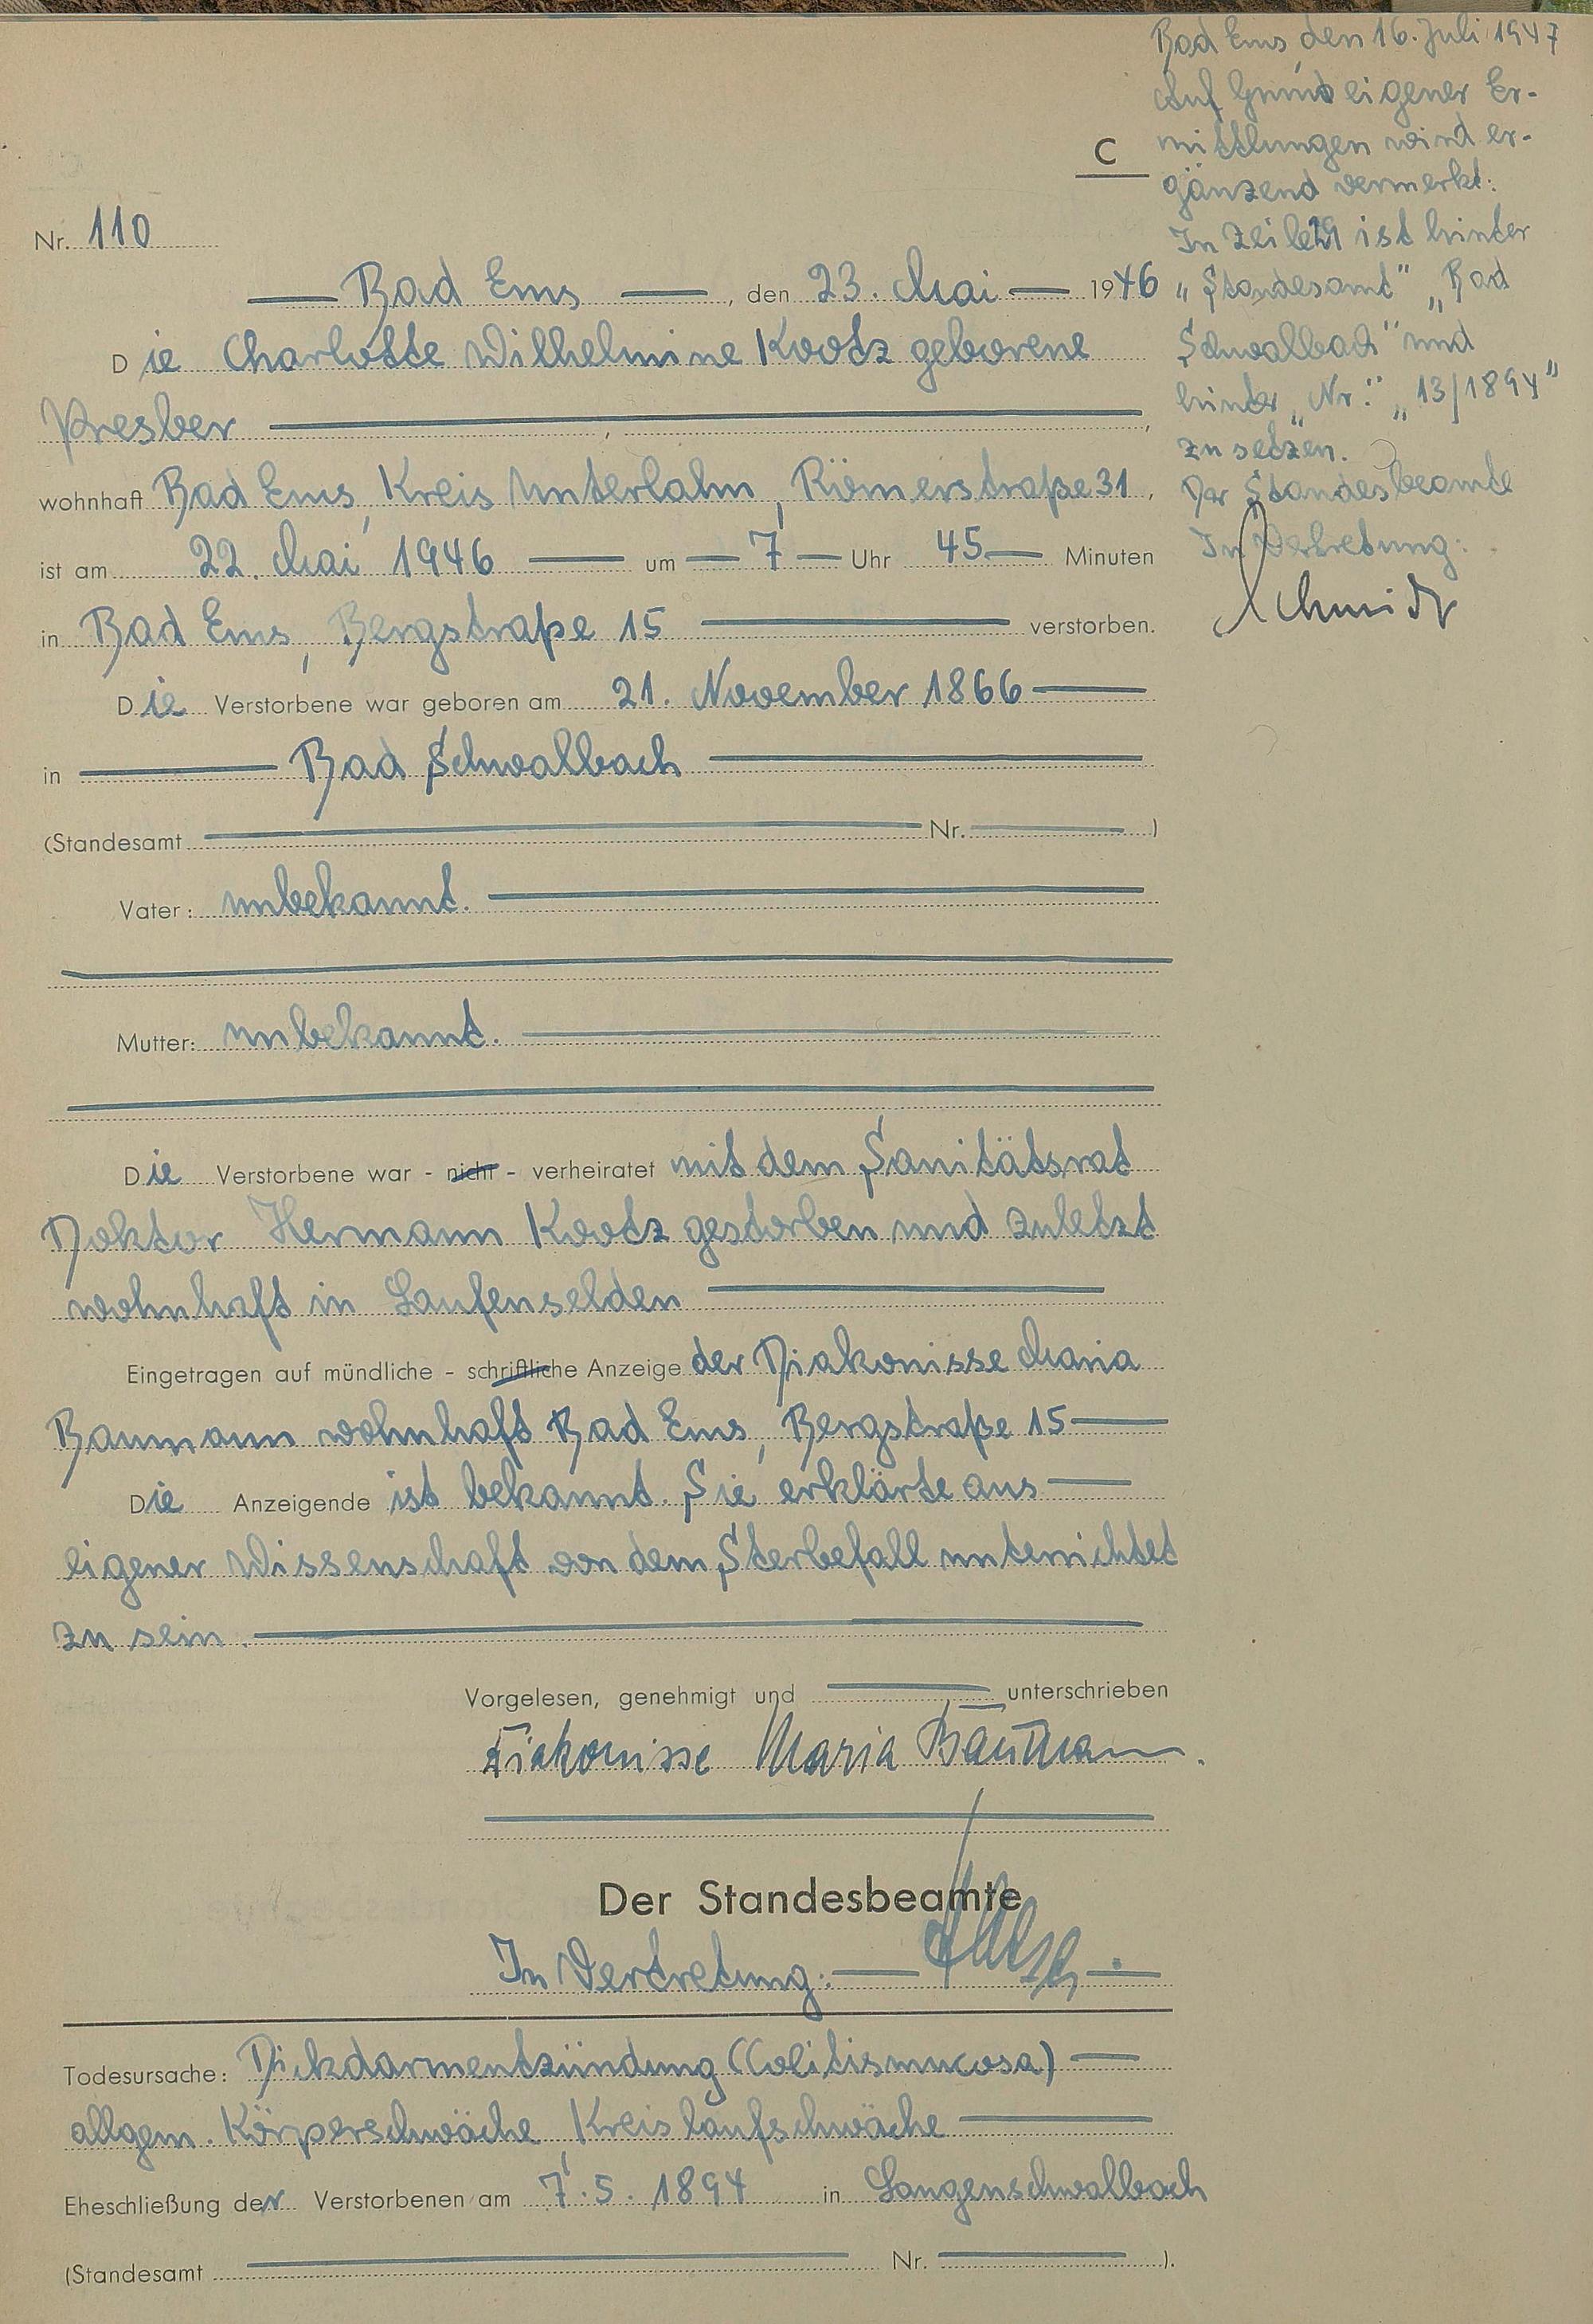 Bad Ems, den 16. Juli 1947
Auf Grund eigener Er-
mittlungen wird er-
gänzend vermerkt:
In Zeile 29 ist hinter
"Standesamt" „Bad
Schwalbach" und
hinter „Nr." „13/1894"
zu setzen.
Der Standesbeamte
In Vertretung:
Schmidt
C
Nr. 110
Bad Ems, den 23. Mai 1946
Die Charlotte Wilhelmine Kootz geborene
Presber
wohnhaft Bad Ems, Kreis Unterlahn, Römerstraße 31,
ist am 22. Mai 1946 um 7 Uhr 45 Minuten
in Bad Ems, Bergstraße 15 verstorben.
Die Verstorbene war geboren am 21. November 1866
in Bad Schwalbach
(Standesamt Nr. )
Vater: unbekannt.
Mutter: unbekannt.
Die Verstorbene war - nicht - verheiratet mit dem Sanitätsrat
Doktor Hermann Kootz gestorben und zuletzt
wohnhaft in Laufenselden
Eingetragen auf mündliche - schriftliche Anzeige der Diakonisse Maria
Baumann wohnhaft Bad Ems, Bergstraße 15
Die Anzeigende ist bekannt. Sie erklärte aus
eigener Wissenschaft von dem Sterbefall unterrichtet
zu sein.
Vorgelesen, genehmigt und unterschrieben
Diakonisse Maria Baumann.
Der Standesbeamte
In Vertretung:
Todesursache: Dickdarmentzündung (Colitismucosa)
allgem. Körperschwäche, Kreislaufschwäche
Eheschließung der Verstorbenen am 7.5.1894 in Langenschwalbach
(Standesamt Nr. ).